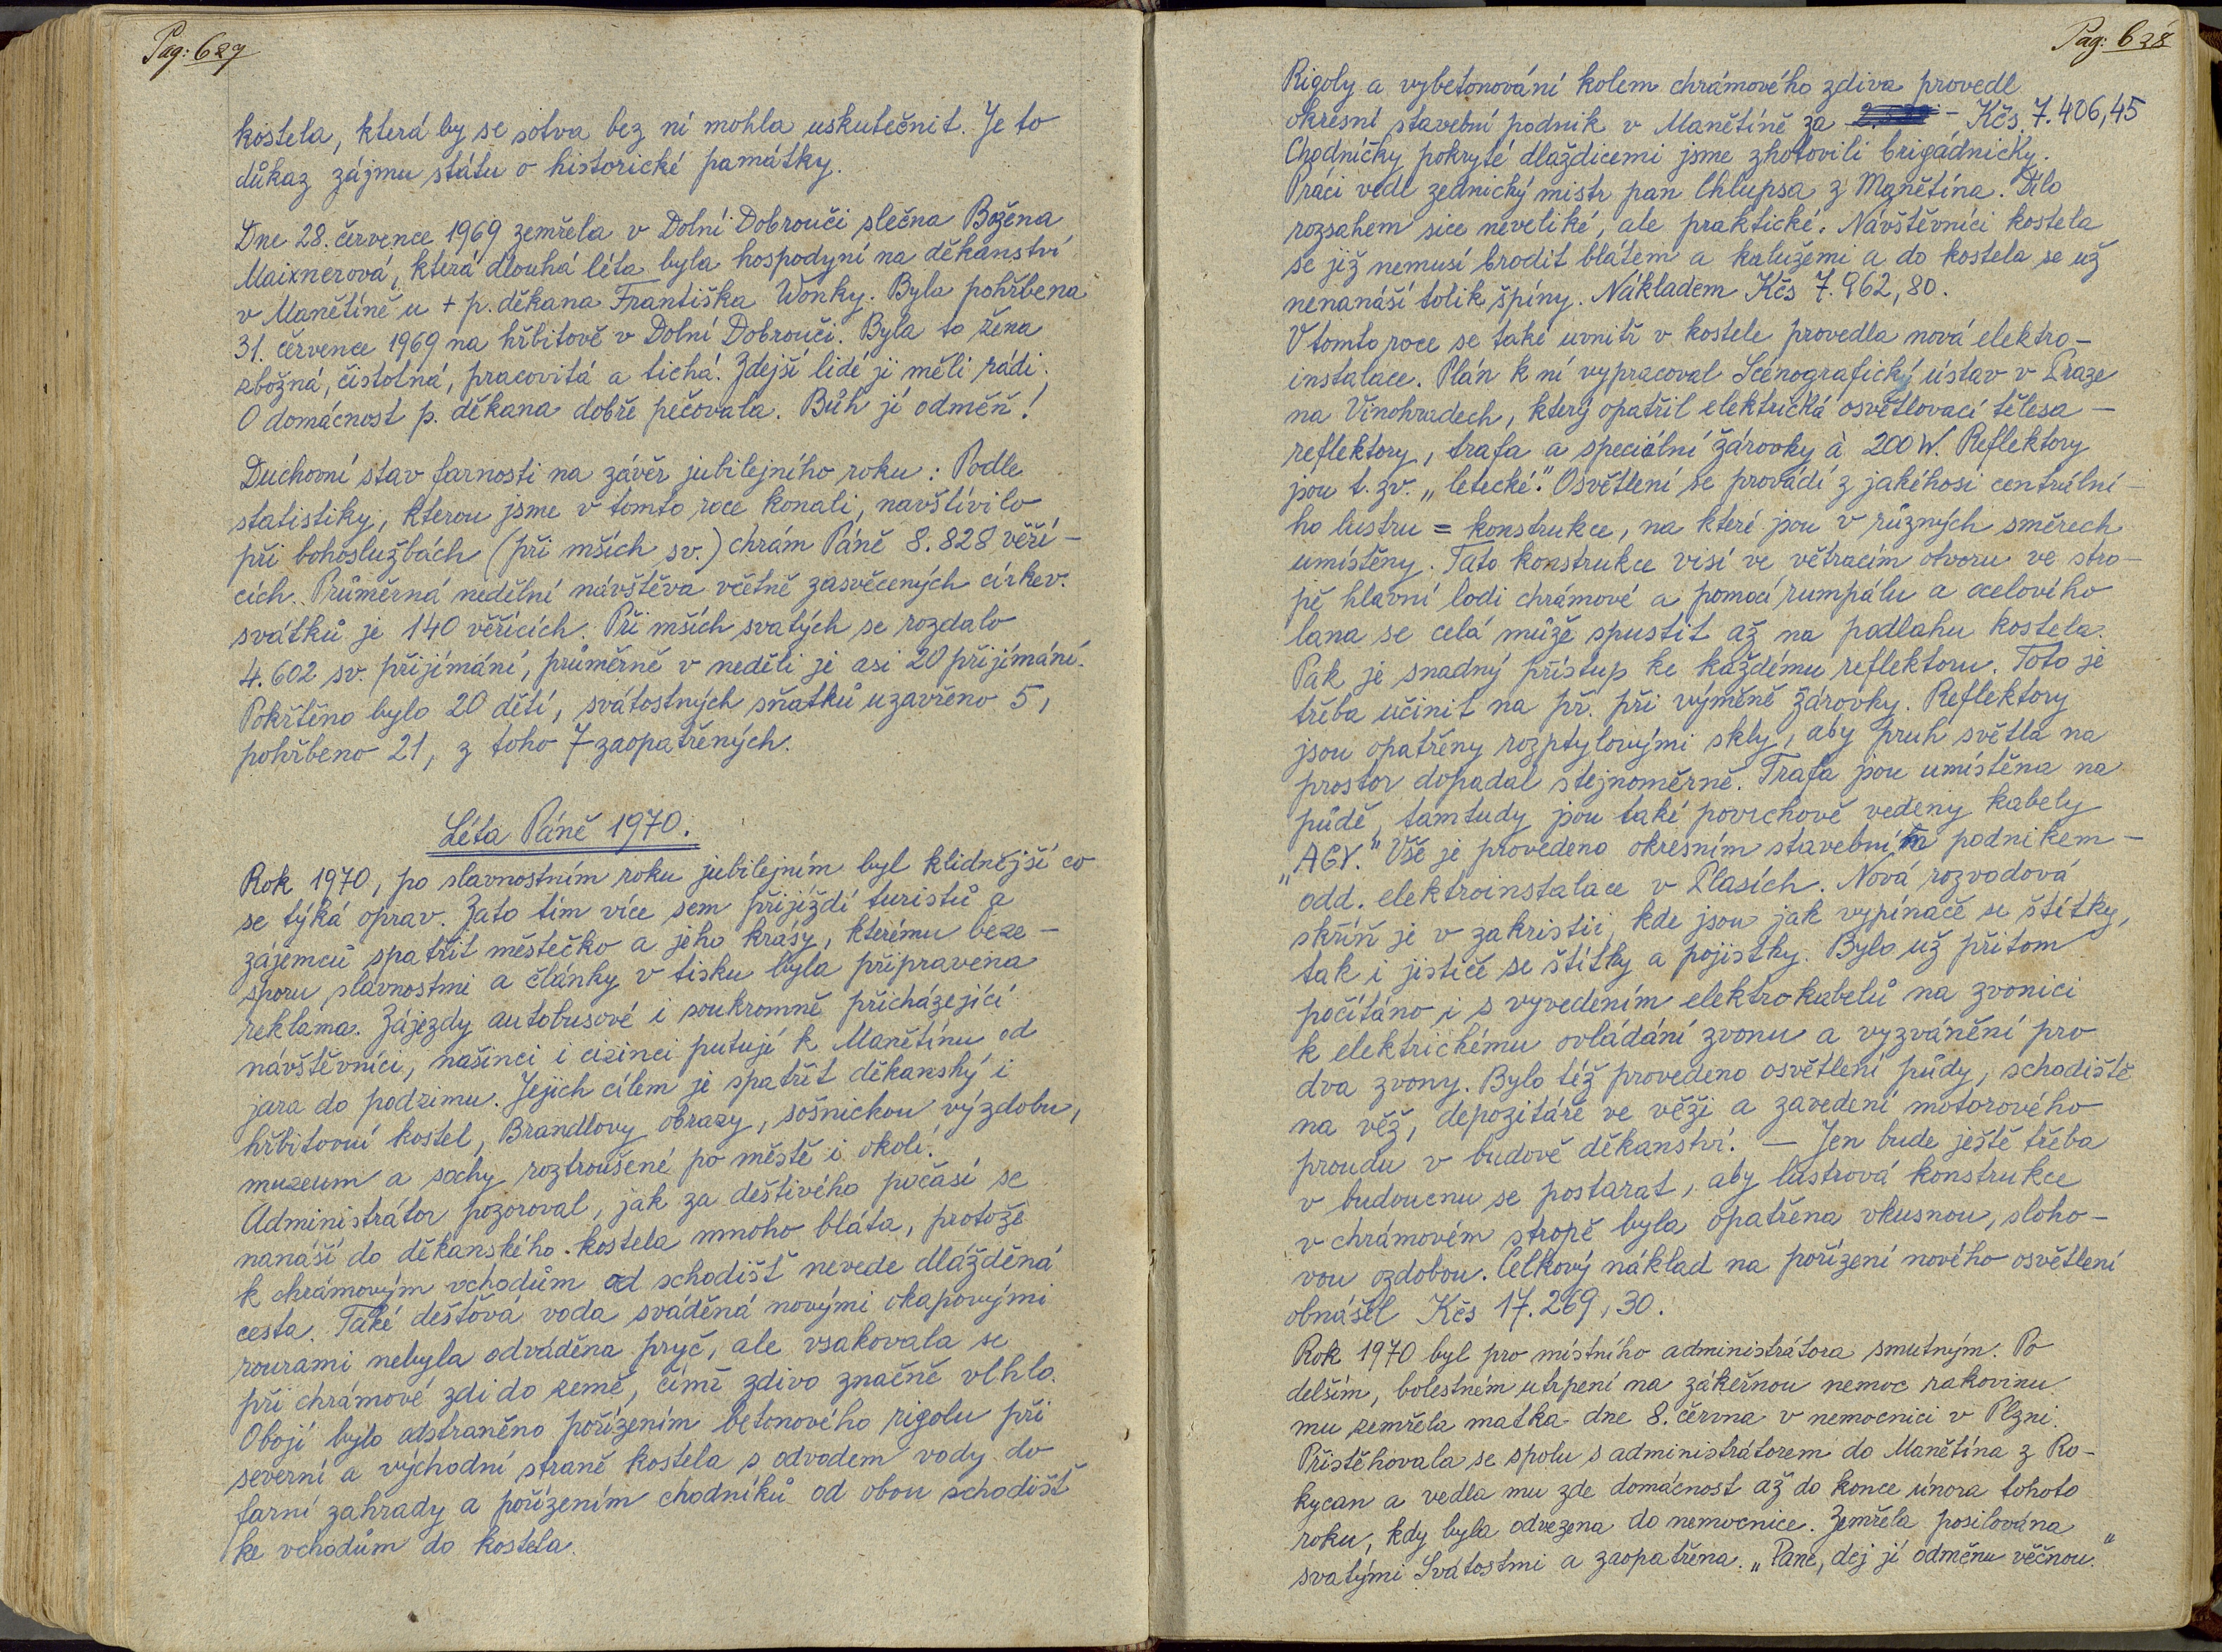 Pag: 627
kostela, která by se sotva bez ní mohla uskutečnit. Je to
důkaz zájmu státu o historické památky.
Dne 28. července 1969 zemřela v Dolní Dobrouči slečna Božena
Maixnerová, která dlouhá léta byla hospodyní na děkanství
v Manětíně u + p. děkana Františka Wonky. Byla pohřbena
31. července 1969 na hřbitově v Dolní Dobrouči. Byla to žena
zbožná, čistotná, pracovitá a tichá. Zdejší lidé ji měli rádi.
O domácnost p. děkana dobře pečovala. Bůh jí odměň!
Duchovní stav farnosti na závěr jubilejního roku: Podle
statistiky, kterou jsme v tomto roce konali, navštívilo
při bohoslužbách (při mších sv.) chrám Páně 8.828 věří-
cích. Průměrná nedělní návštěva včetně zasvěcených církev.
svátků je 140 věřících. Při mších svatých se rozdalo
4.602 sv. přijímání, průměrně v neděli je asi 20 přijímání.
Pokřtěno bylo 20 dětí, svátostných sňatků uzavřeno 5,
pohřbeno 21, z toho 7 zaopatřených.
Léta Páně 1970.
Rok 1970, po slavnostním roku jubilejním byl klidnější co
se týká oprav. Zato tím více sem přijíždí turistů a
zájemců spatřit městečko a jeho krásy, kterému beze-
sporu slavnostmi a články v tisku byla připravena
reklama. Zájezdy autobusové i soukromně přicházející
návštěvníci, našinci i cizinci putují k Manětínu od
jara do podzimu. Jejich cílem je spatřit děkanský i
hřbitovní kostel, Brandlovy obrazy, sošnickou výzdobu,
muzeum a sochy roztroušené po městě i okolí.
Administrátor pozoroval, jak za deštivého počasí se
nanáší do děkanského kostela mnoho bláta, protože
k chrámovým vchodům od schodišť nevede dlážděná
cesta. Také dešťová voda sváděná novými okapovými
rourami nebyla odváděna pryč, ale vsakovala se
při chrámové zdi do země, čímž zdivo značně vlhlo.
Obojí bylo odstraněno pořízením betonového rigolu při
severní a východní straně kostela s odvodem vody do
farní zahrady a pořízením chodníků od obou schodišť
ke vchodům do kostela.
Pag: 628
Rigoly a vybetonování kolem chrámového zdiva provedl
okresní stavební podnik v Manětíně za - Kčs 7.406,45
Chodníčky pokryté dlaždicemi jsme zhotovili brigádnicky.
Práci vedl zednický mistr pan Chlupsa z Manětína. Dílo
rozsahem sice neveliké, ale praktické. Návštěvníci kostela
se již nemusí brodit blátem a kalužemi a do kostela se už
nenanáší tolik špíny. Nákladem Kčs 7.962,80.
V tomto roce se také uvnitř v kostele provedla nová elektro-
instalace. Plán k ní vypracoval Scénografický ústav v Praze
na Vinohradech, který opatřil elektrická osvětlovací tělesa -
reflektory, trafa a speciální žárovky à 200 W. Reflektory
jsou t. zv. „letecké". Osvětlení se provádí z jakéhosi centrální-
ho lustru = konstrukce, na které jsou v různých směrech
umístěny. Tato konstrukce visí ve větracím otvoru ve stro-
pě hlavní lodi chrámové a pomocí rumpálu a ocelového
lana se celá může spustit až na podlahu kostela.
Pak je snadný přístup ke každému reflektoru. Toto je
třeba učinit na př. při výměně žárovky. Reflektory
jsou opatřeny rozptylovými skly, aby pruh světla na
prostor dopadal stejnoměrně. Trafa jsou umístěna na
půdě, tamtudy jsou také povrchově vedeny kabely
„AGY." Vše je provedeno okresním stavebním podnikem -
odd. elektroinstalace v Plasích. Nová rozvodová
skříň je v zakristii, kde jsou jak vypínače se štítky,
tak i jističe se štítky a pojistky. Bylo už přitom
počítáno i s vyvedením elektrokabelů na zvonici
k elektrickému ovládání zvonu a vyzvánění pro
dva zvony. Bylo též provedeno osvětlení půdy, schodiště
na věž, depozitáře ve věži a zavedení motorového
proudu v budově děkanství. - Jen bude ještě třeba
v budoucnu se postarat, aby lustrová konstrukce
v chrámovém stropě byla opatřena vkusnou, sloho-
vou ozdobou. Celkový náklad na pořízení nového osvětlení
obnášel Kčs 17.269,30.
Rok 1970 byl pro místního administrátora smutným. Po
delším, bolestném utrpení na zákeřnou nemoc rakovinu
mu zemřela matka dne 8. června v nemocnici v Plzni.
Přistěhovala se spolu s administrátorem do Manětína z Ro-
kycan a vedla mu zde domácnost až do konce února tohoto
roku, kdy byla odvezena do nemocnice. Zemřela posilována
svatými Svátostmi a zaopatřena. „Pane, dej jí odměnu věčnou."